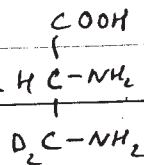 COOH
H C-NH2
D2C-NH2